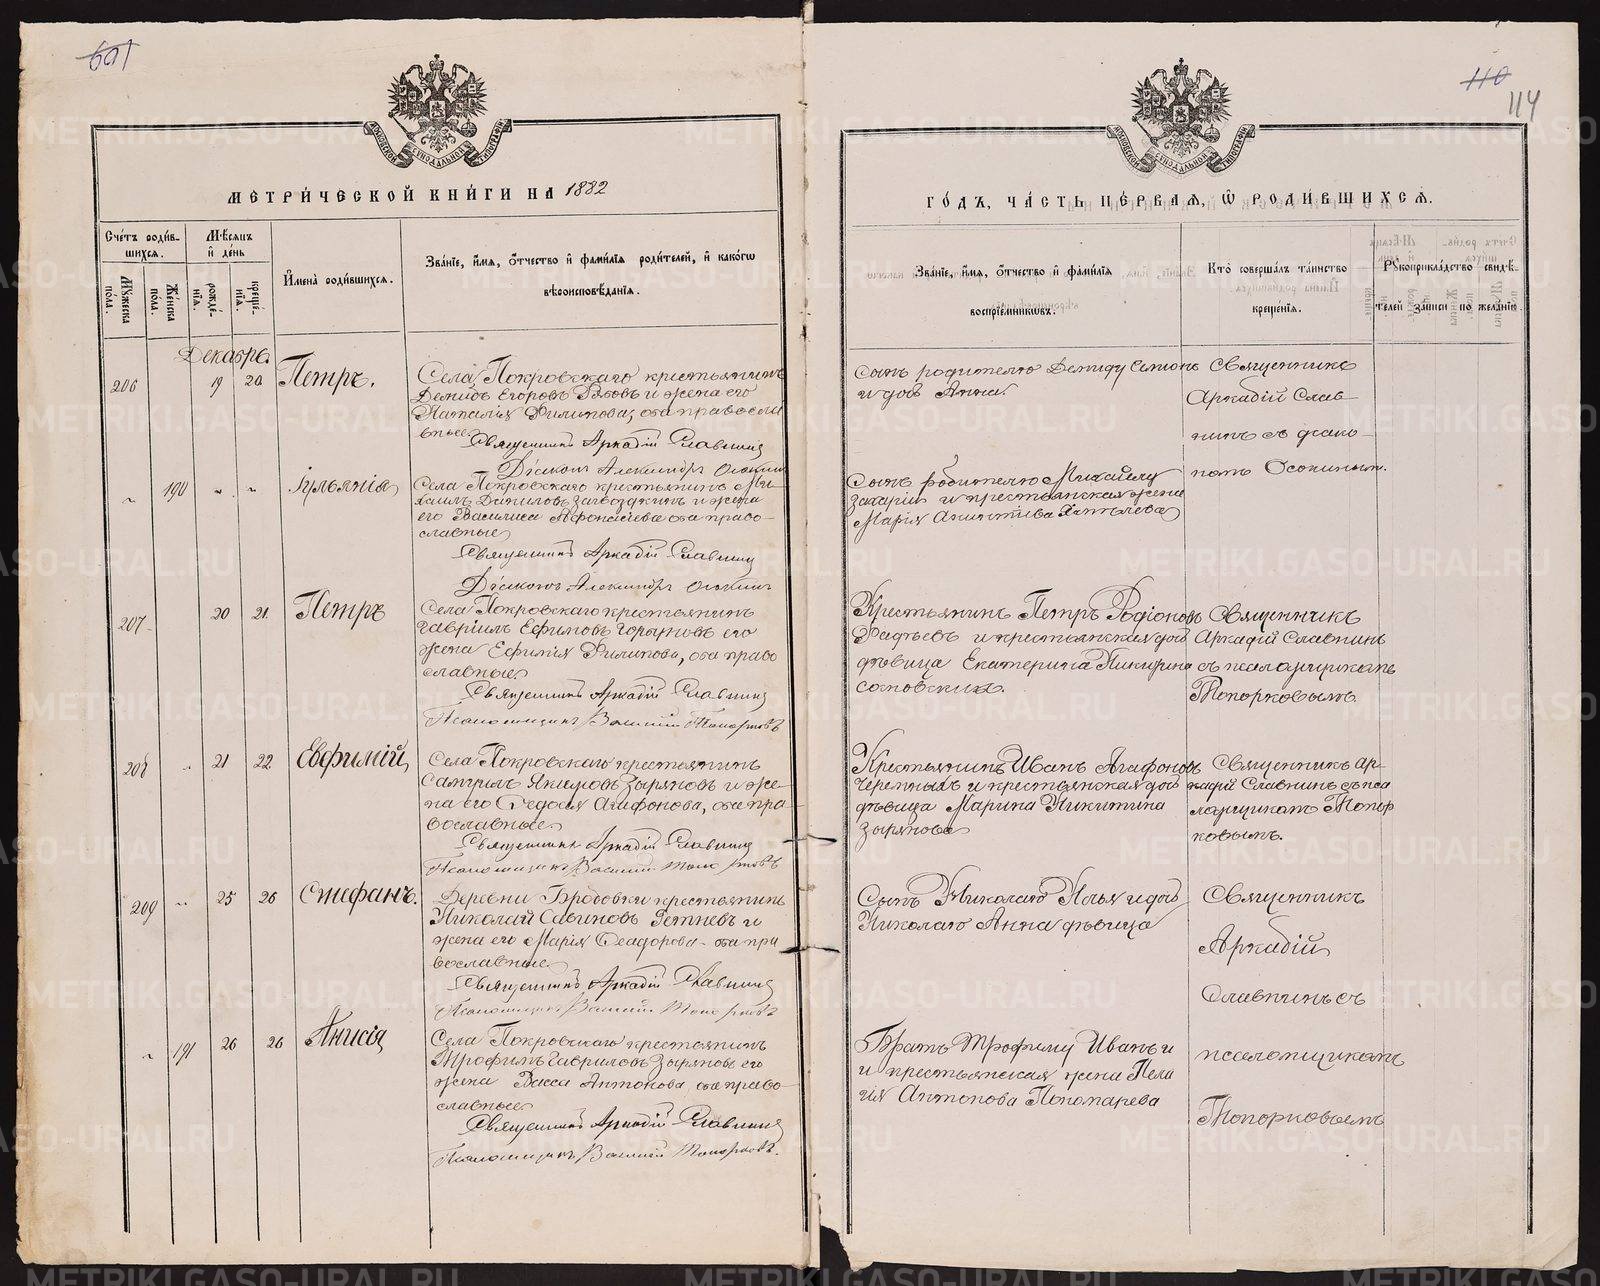 601
МЕТРИ́ЧЕСКОЙ КНИ́ГИ НА 1882
Сче́тъ роди́вшихсѧ.
Мѣ́сѧцъ и де́нь
Имена̀ роди́вшихсѧ.
Зва́нїе, и́мѧ, о́тчество и фами́лїѧ роди́телей, и како́гѡ
вѣроисповѣ́данїѧ.
Мꙋ́жеска по́ла.
Же́нска по́ла.
рожде́нїѧ.
креще́нїѧ.
Декабрь.
206 19 20 Петръ.
Села Покровскаго крестьянинъ
Демидъ Егоровъ Рябовъ и жена его
Наталія Филипова, оба правосла
вные
Священникъ Аркадій Славнинъ
Діаконъ Александръ Осокинъ
" 190 " " Іульянія
Села Покровскаго крестьянинъ Ми-
хаилъ Даниловъ Загвоздкинъ и жена
его Василиса Афонасіева оба право-
славные
Священникъ Аркадій Славнинъ
Діаконъ Александръ Осокинъ
207 20 21 Петръ
Села Покровскаго крестьянинъ
Гавріилъ Ефимовъ Горбуновъ его
жена Ефимія Филипова, оба право
славные
Священникъ Аркадій Славнинъ
Псаломщикъ Василій Топорковъ
208 " 21 22 Евфимій,
Села Покровскаго крестьянинъ
Самуилъ Якимовъ Зыряновъ и же-
на его Ѳедосія Агафонова, оба пра-
вославные
Священникъ Аркадій Славнинъ
Псаломщикъ Василій Топорковъ
209 " 25 26 Стефанъ.
Деревни Бродовки крестьянинъ
Николай Савиновъ Ретневъ и
жена его Марія Ѳеадорова - оба пра
вославные
Священникъ Аркадій Славнинъ
Псаломщикъ Василій Топорковъ
" 191 26 26 Анисія
Села Покровскаго крестьянинъ
Трофимъ Гавриловъ Зыряновъ его
жена Васса Антонова, оба право-
славные
Священникъ Аркадій Славнинъ
Псаломщикъ Василій Топорковъ.
110
114
ГО́ДЪ, ЧА́СТЬ ПЕ́РВАѦ, Ѡ РОДИ́ВШИХСѦ.
Зва́нїе, и́мѧ, о́тчество и фами́лїѧ
воспрїе́мникѡвъ.
Кто̀ соверша́лъ та́инство
креще́нїѧ.
Рꙋкоприкла́дство свидѣ́-
телей за́писи по жела́нїю.
Сынъ родителю Демиду Семіонъ
и дочь Анна.
Священникъ
Аркадій Слав
нинъ съ діако-
номъ Осокинымъ.
Сынъ родителю Михаилу
Захарій и крестьянская жена
Марія
Крестьянинъ Петръ Родіоновъ
и крестьянская дочь
дѣвица Екатерина Никифрова
Сосновскихъ.
Священникъ
Аркадій Славнинъ
съ псаломщикомъ
Топорковымъ.
Крестьянинъ Иванъ Агафоновъ
Черемныхъ и крестьянская дочь
дѣвица Марина Никитина
Зырянова
Священникъ Ар-
кадій Славнинъ съ пса
ломщикомъ Топор
ковымъ.
Сынъ Николаю Илья и дочь
Николаю Анна дѣвица
Священникъ
Аркадій
Славнинъ съ
псаломщикомъ
Топорковымъ
Братъ Трофиму Иванъ и
и крестьянская жена Пела
гія Антонова Пономарева
METRIKI.GASO-URAL.RU